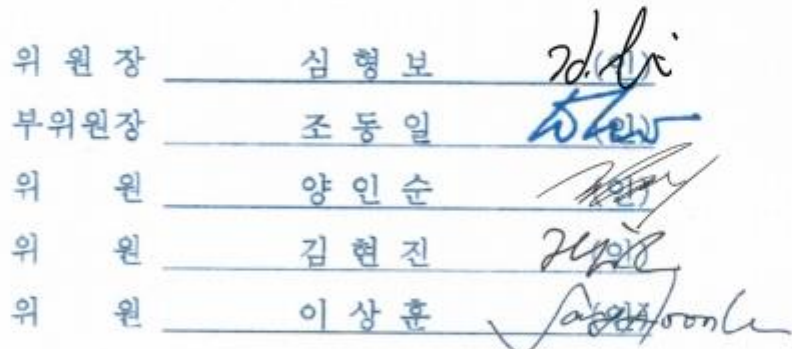 위 원 장 심 형 보 (인)
부위원장 조 동 일 (인)
위 원 양 인 순 (인)
위 원 김 현 진 (인)
위 원 이 상 훈 (인)